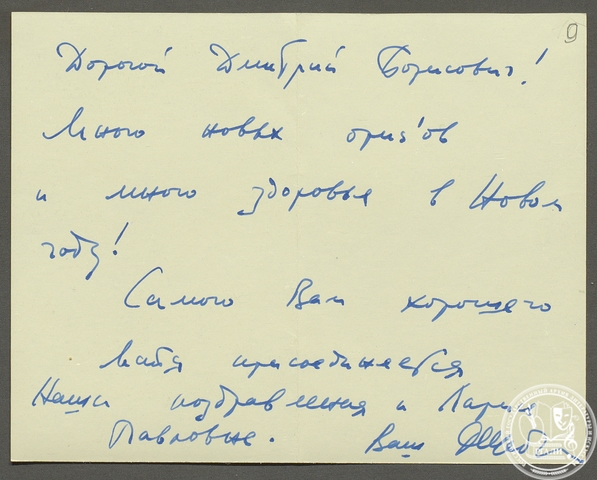 9
Дорогой Дмитрий Борисович!
Много новых
и много здоровья в Новом
году!
Самого Вам хорошего
Майя присоединяется
Наши поздравления и Ларисе
Павловне. Ваш